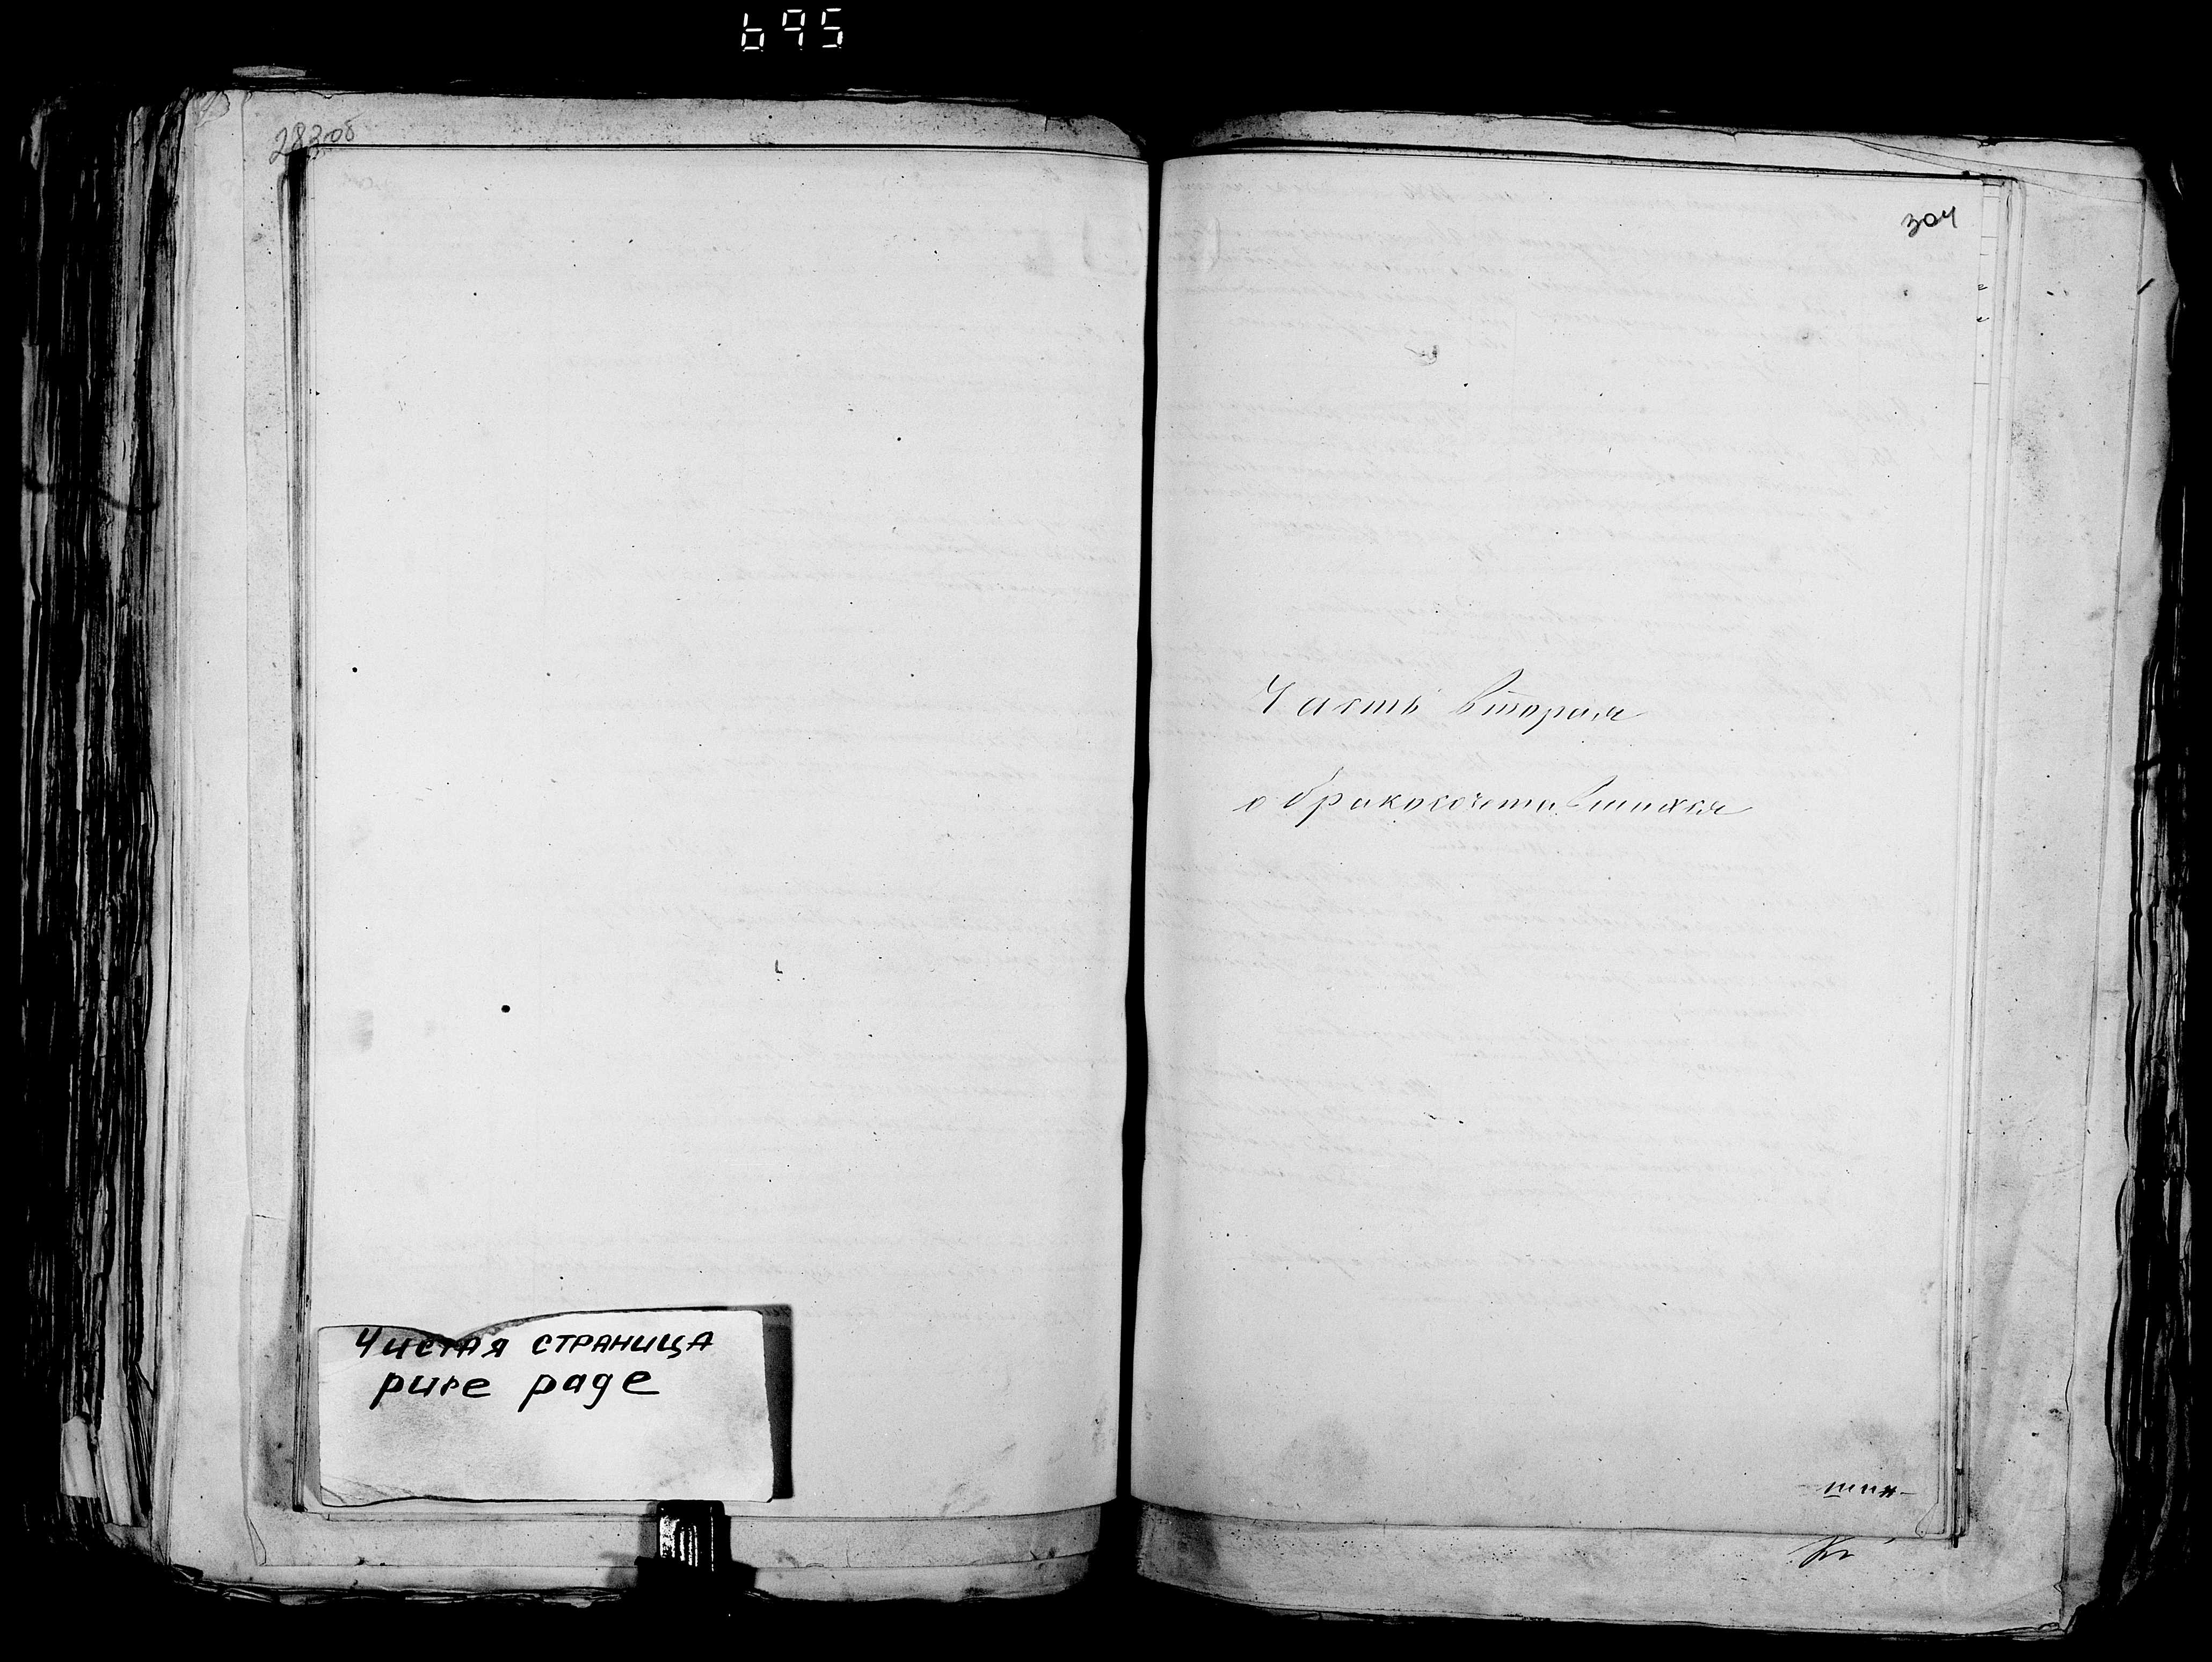 695
283об
Чистая страница
pure page
304
Часть вторая
о бракосочетавшихся
шин-